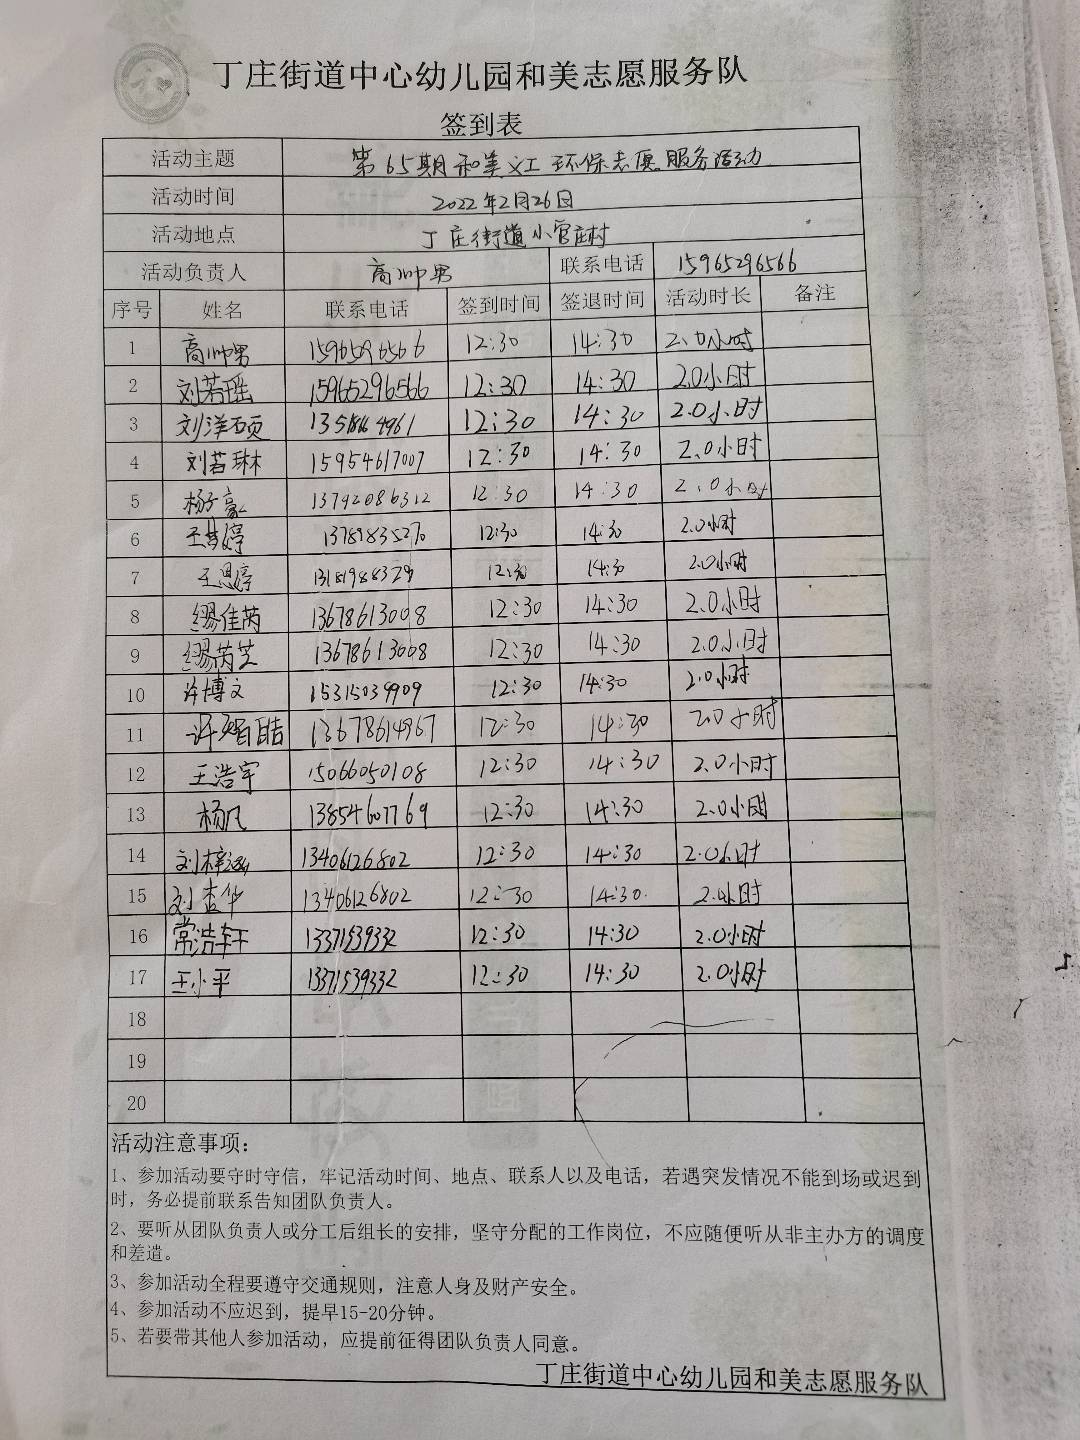 丁庄街道中心幼儿园和美志愿服务队
签到表
活动主题 第65期和美义工环保志愿服务活动
活动时间 2022年2月26日
活动地点 丁庄街道小官庄村
活动负责人 高帅男 联系电话 15965296566
序号 姓名 联系电话 签到时间 签退时间 活动时长 备注
1 高帅男 15965296566 12:30 14:30 2.0小时
2 刘若瑶 15965296566 12:30 14:30 2.0小时
3 刘洋硕 12:30 14:30 2.0小时
4 刘若琳 15954617007 12:30 14:30 2.0小时
5 杨子豪 13792086312 12:30 14:30 2.0小时
6 王梦婷 13789835270 12:30 14:30 2.0小时
7 王思婷 13181988329 12:30 14:30 2.0小时
8 缪佳芮 13678613008 12:30 14:30 2.0小时
9 缪芮芝 13678613008 12:30 14:30 2.0小时
10 许博文 15315039909 12:30 14:30 2.0小时
11 许智皓 13678614967 12:30 14:30 2.0小时
12 王浩宇 15066050108 12:30 14:30 2.0小时
13 杨凡 13854607769 12:30 14:30 2.0小时
14 刘梓涵 13406126802 12:30 14:30 2.0小时
15 刘杏华 13406126802 12:30 14:30 2.0小时
16 常浩轩 13371539332 12:30 14:30 2.0小时
17 王小平 13371539332 12:30 14:30 2.0小时
18
19
20
活动注意事项:
1、参加活动要守时守信，牢记活动时间、地点、联系人以及电话，若遇突发情况不能到场或迟到
时，务必提前联系告知团队负责人。
2、要听从团队负责人或分工后组长的安排，坚守分配的工作岗位，不应随便听从非主办方的调度
和差遣。
3、参加活动全程要遵守交通规则，注意人身及财产安全。
4、参加活动不应迟到，提早15-20分钟。
5、若要带其他人参加活动，应提前征得团队负责人同意。
丁庄街道中心幼儿园和美志愿服务队